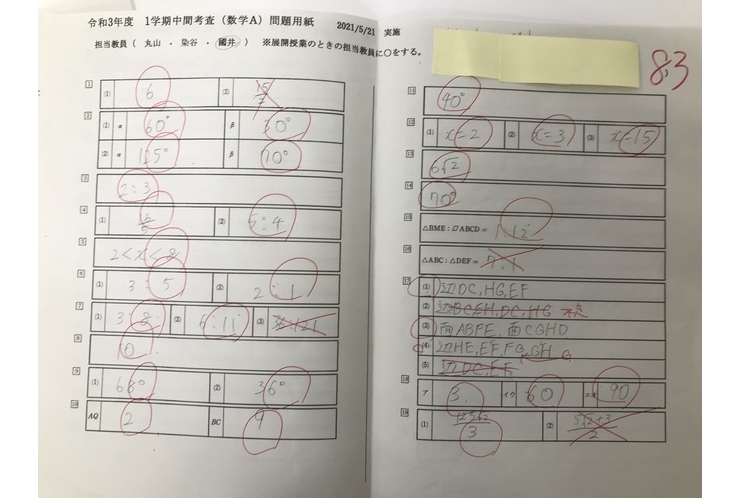 令和3年度 1学期中間考査（数学A）問題用紙 2021/5/21 実施
担当教員（ 丸山 ・ 染谷 ・ 國井 ） ※展開授業のときの担当教員に○をする。
83
1 (1) 6 (2) 15/7
2 (1) α 60° β 30°
(2) α 125° β 70°
3 2:3
4 (1) 6/5 (2) 5:4
5 2<x<8
6 (1) 3:5 (2) 2:1
7 (1) 3:8 (2) 6:11 (3)
8 10
9 (1) 68° (2) 36°
10 AQ 2 BC 9
11 40°
12 (1) x=2 (2) x=3 (3) x=15
13 6√2
14 70°
15 △BME : ▱ABCD = 1:12
16 △ABC : △DEF = 7:1
17 (1) 辺DC,HG,EF
(2) EH,DC,HG
(3) 面ABFE, 面CGHD
(4) 辺HE,EF,FG,GH
(5) 辺DC,EF
18 ア 3 イウ 60 エオ 90
19 (1) 3 (2) 2